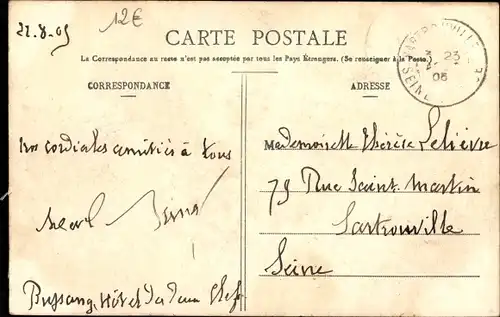 21.8.05
12€
CARTE POSTALE
La Correspondance au recto n'est pas acceptée par tous les Pays Étrangers. (Se renseigner à la Poste.)
CORRESPONDANCE
ADRESSE
SARTROUVILLE
23
05
SEINE
cordiales amitiés à tous
Mademoiselle Thérèse Lelièvre
79 Rue Saint-Martin
Sartrouville
Seine
Bussang, Hôtel des Deux Clefs